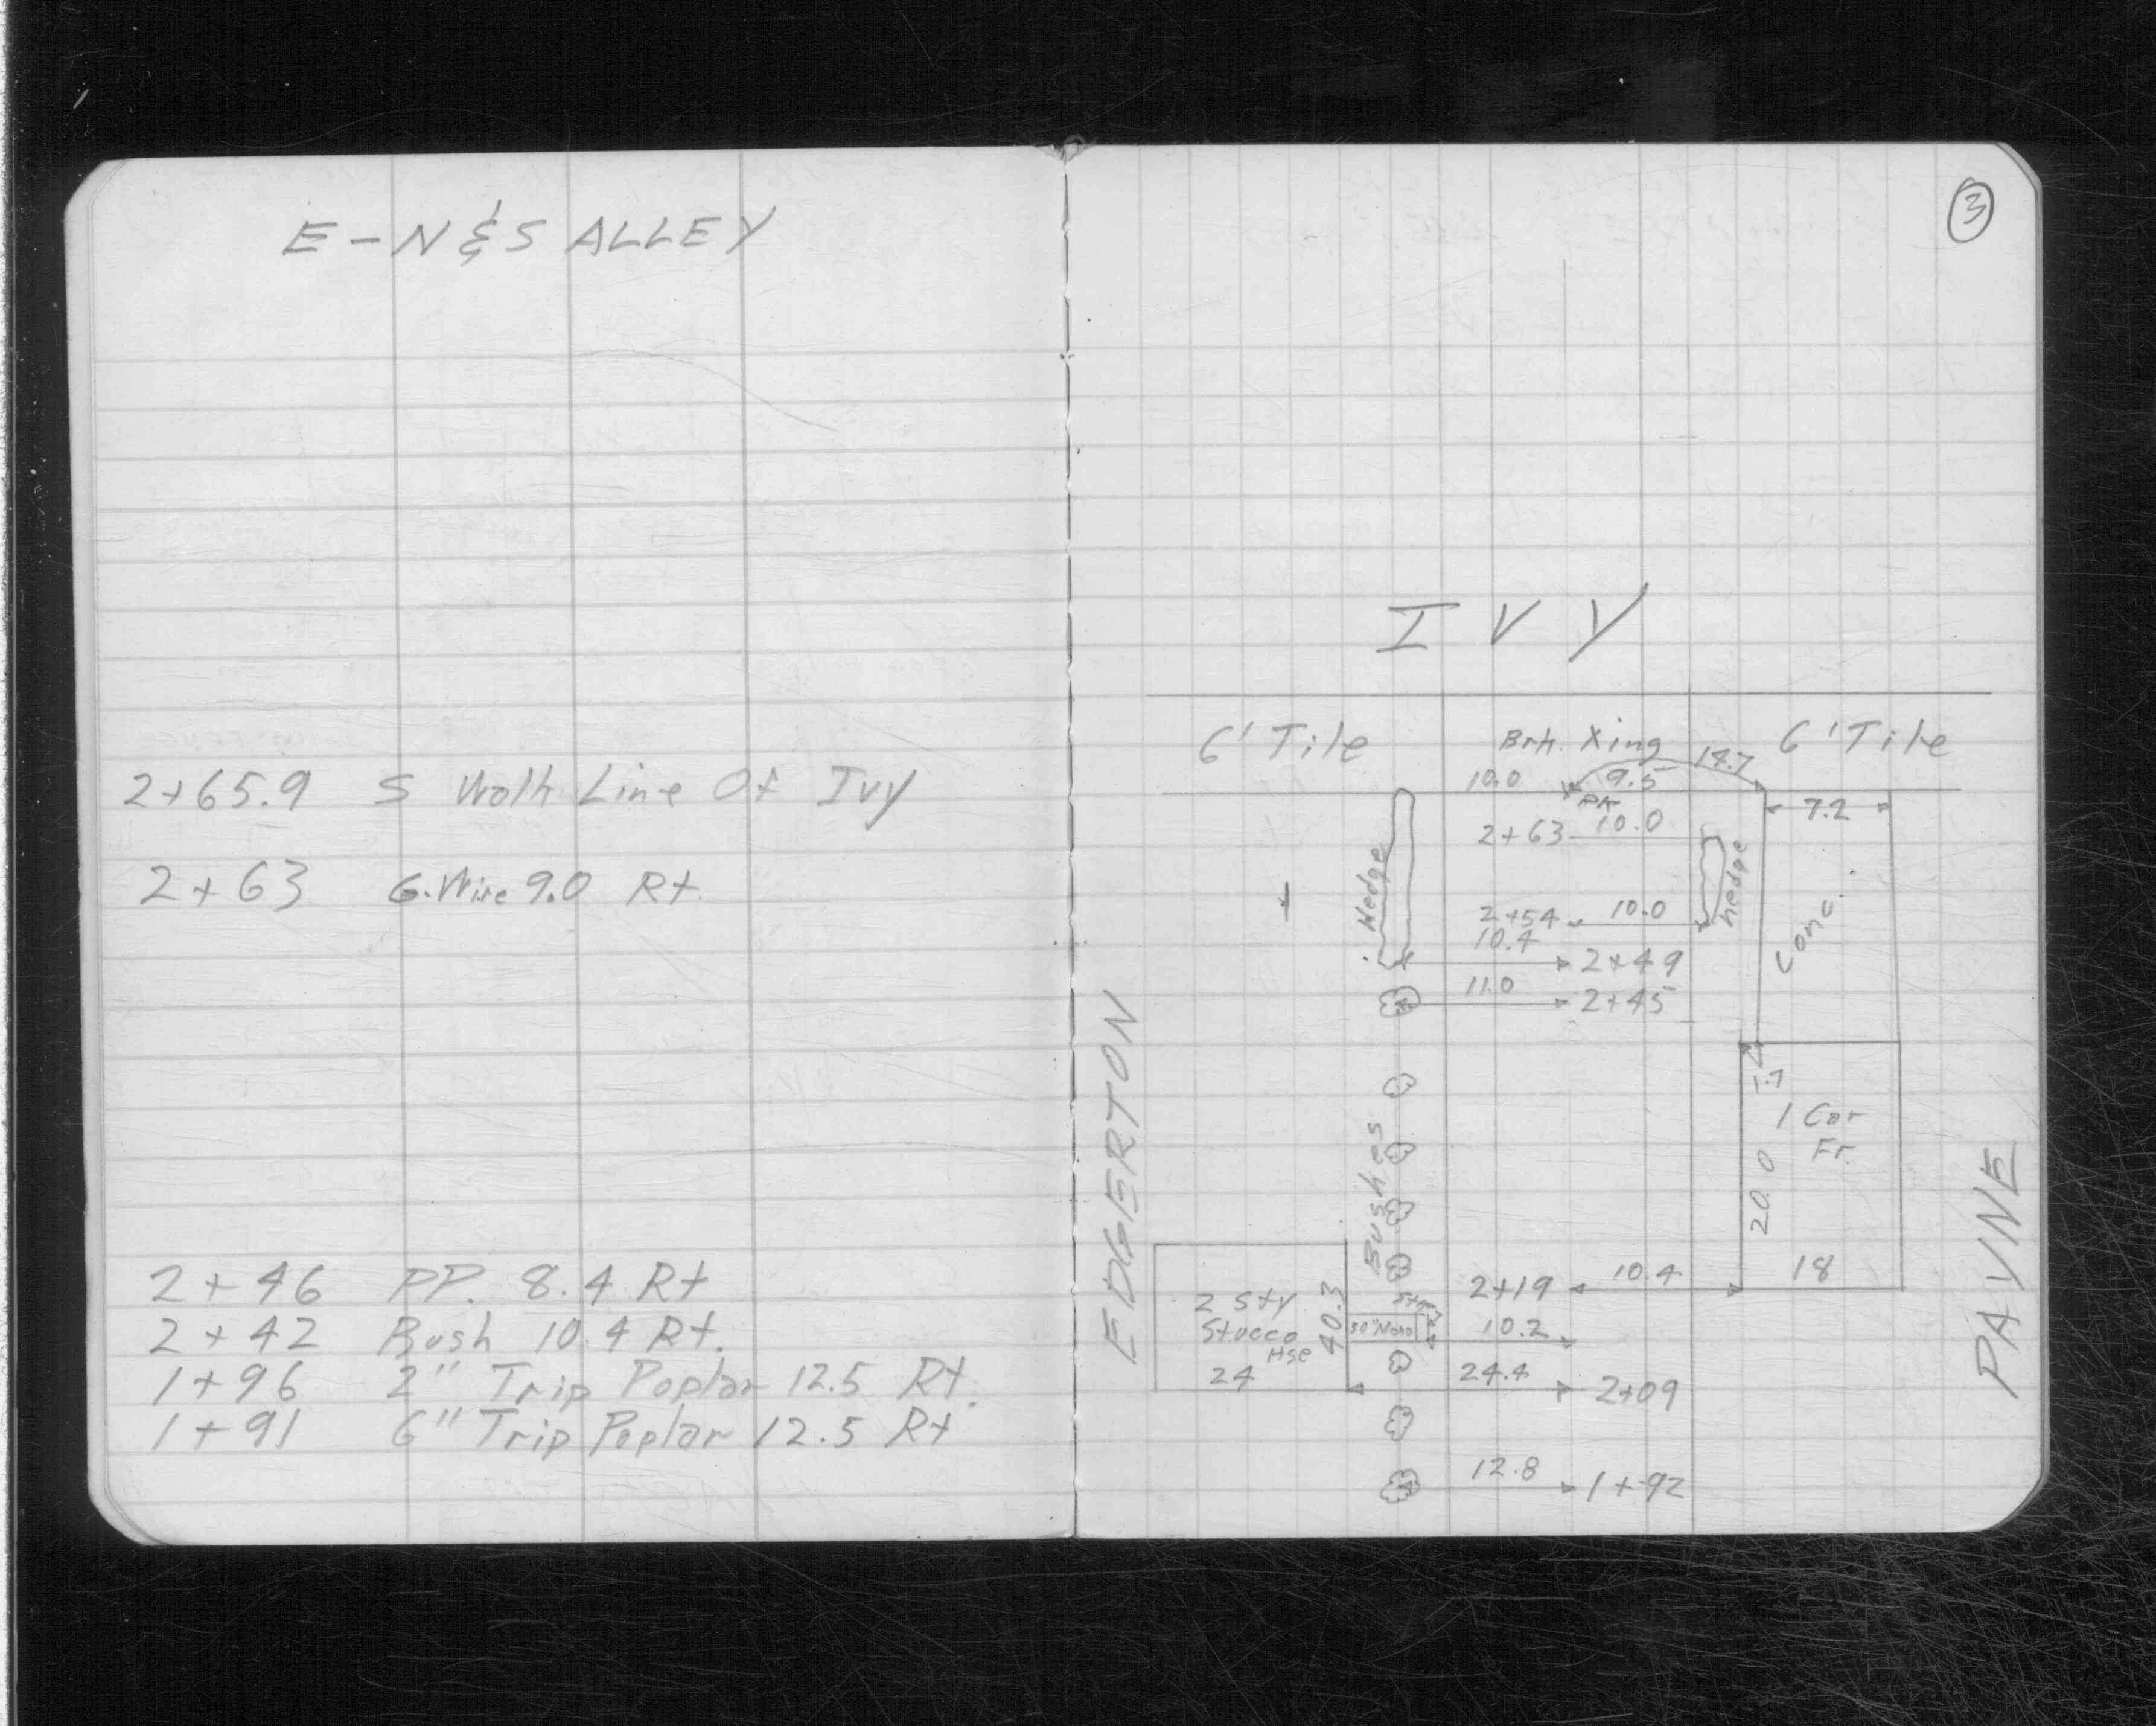 E-N&S ALLEY
2+65.9 S Walk Line Of Ivy
2+63 G.Wire 9.0 Rt.
2+46 PP. 8.4 Rt
2+42 Bush 10.4 Rt.
1+96 2" Trip Poplar 12.5 Rt.
1+91 6" Trip Poplar 12.5 Rt
3
IVY
6' Tile
Xing
6' Tile
10.0
9.5
14.7
PK
7.2
2+63 10.0
Hedge
hedge
2+54 10.0
10.4
2+49
Conc.
11.0
2+45
EDGERTON
1 Car
Fr.
20.0
18
Bushes
PAYNE
2+19 10.4
2 Sty
Stucco
Hse
24
40.3
10.2
24.4
2+09
12.8
1+92